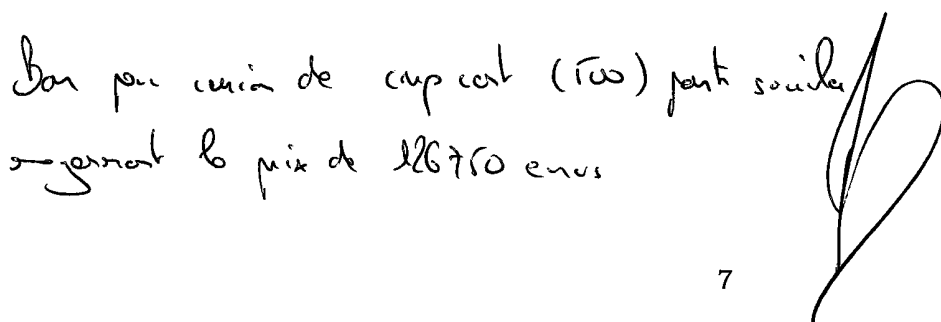 Bon pour cession de cinq cent (500) parts sociales
moyennant le prix de 126750 euros
7